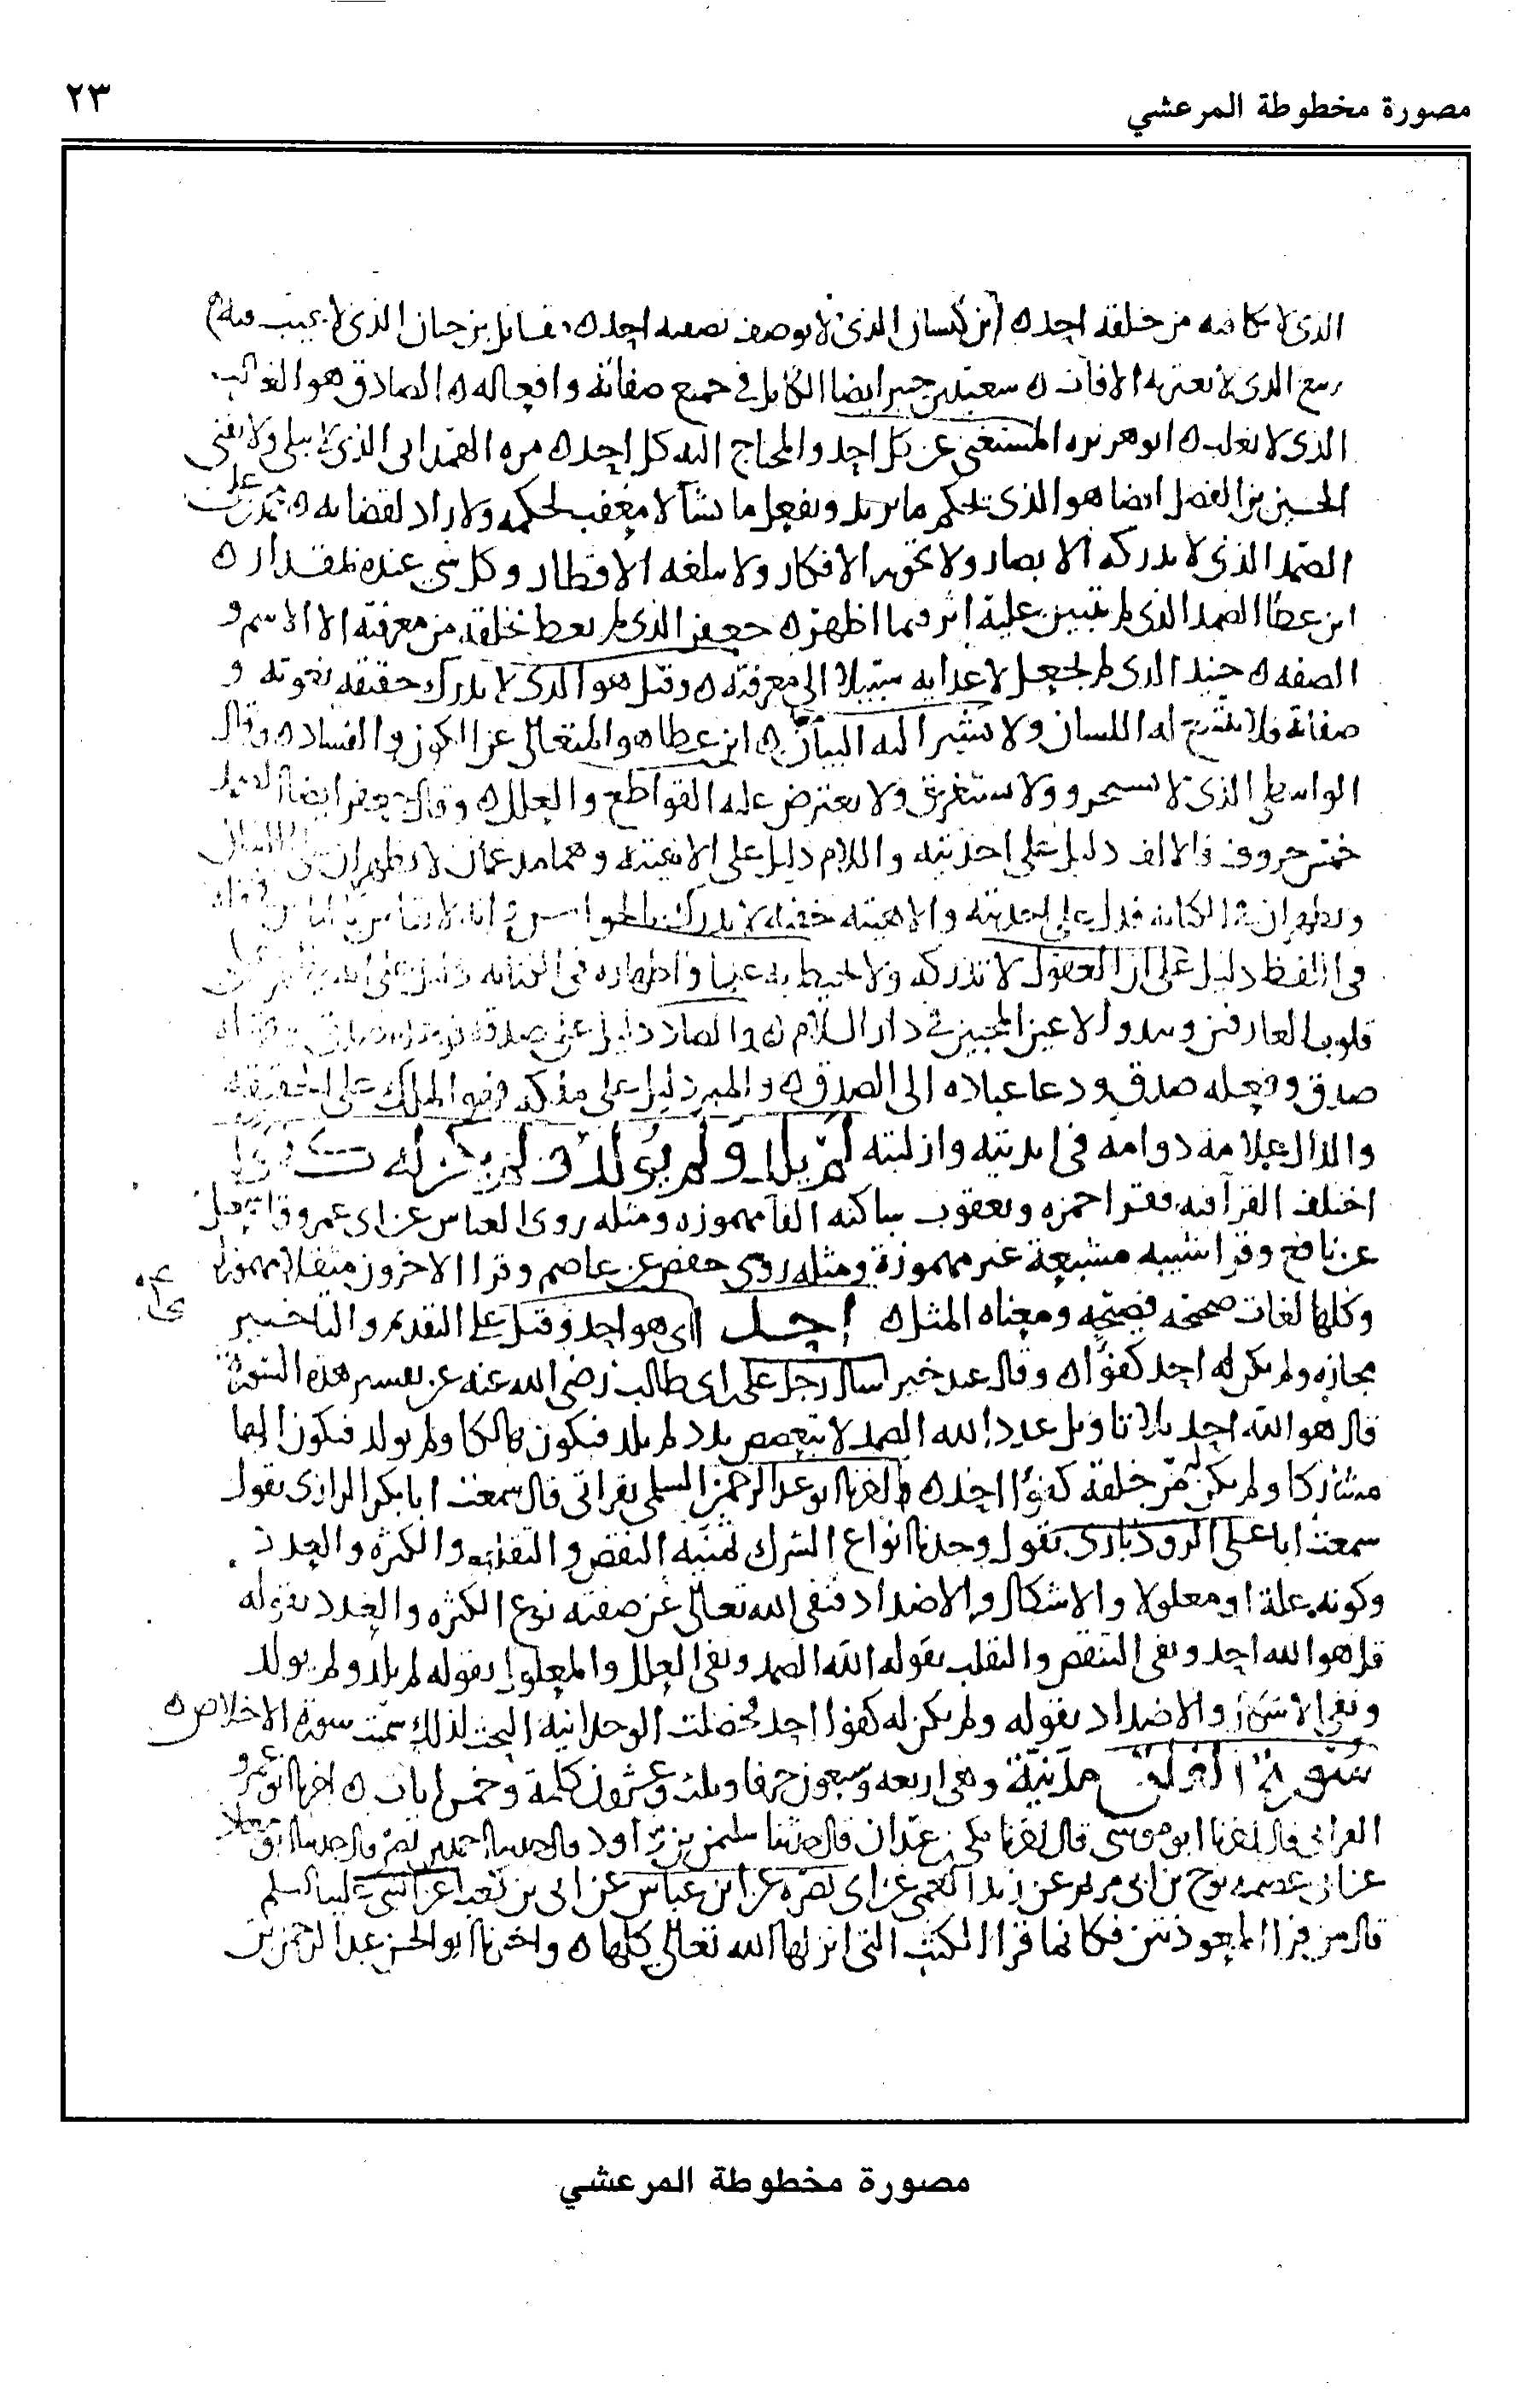 مصورة مخطوطة المرعشي
٢٣
الذى لا يكافيه من خلقه احد ابن كيسان الذى لا يوصف بصفته احد مقاتل بن حيان الذى لا عيب فيه
ربيع الذى لا تعتريه الافات سعيد بن جبير ايضا الكامل فى جميع صفاته وافعاله الصادق هو الغالب
الذى لا يغلب ابو هريره المستغنى عن كل احد والمحتاج اليه كل احد مره الهمدانى الذى لا يبلى ولا يفنى
الحسين بن الفضل ايضا هو الذى يحكم ما يريد ويفعل ما يشا لا معقب لحكمه ولا راد لقضايه محمد بن على
الصمد الذى لا تدركه الابصار ولا تحويه الافكار ولا تبلغه الاقطار وكل شى عنده بمقدار
ابن عطا الصمد الذى لم يتبين عليه اثر فيما اظهر جعفر الذى لم يعط لخلقه من معرفته الا الاسم و
الصفه جنيد الذى لم يجعل لاعدايه سبيلا الى معرفته وقيل هو الذى لا يدرك حقيقه نعوته و
صفاته فلا يتسع له اللسان ولا يشير اليه البيان ابن عطا هو المتعالى عن الكون والفساد وقال
الواسطى الذى لا يسحر ولا يستغرق ولا يعترض عليه القواطع والعلل وقال جعفر ايضا الصمد
خمس حروف فالالف دليل على احديته واللام دليل على الاهيته وهما مدغمان لا يظهران على اللسان
ويظهران فى الكتابه فدل على احديته والاهيته خفيه لا يدرك بالحواس وانه لا يقاس بالناس فخفاه
فى اللفظ دليل على ان العقول لا تدركه ولا تحيط به علما واظهاره فى الكتابه دليل على انه يظهر على
قلوب العارفين ويبدو لاعين المحبين فى دار السلام والصاد دليل على صدقه فوعده صدق وقوله
صدق وفعله صدق ودعا عباده الى الصدق والميم دليل على ملكه فهو الملك على الحقيقه
والدال علامة دوامه فى ابديته وازليته لم يلد ولم يولد ولم يكن له كفوا
اختلف القرا فيه فقرا حمزه ويعقوب ساكنه الفا مهموزه ومثله روى العباس عن ابى عمرو واسمعيل
عن نافع وقرا شيبه مشبعة غير مهموزة ومثله روى حفص عن عاصم وقرا الاخرون مثقلا مهموزا
وكلها لغات صحيحه فصيحه ومعناه المثل احد اى هو احد وقيل على التقديم والتاخير
مجازه ولم يكن له احد كفوا وقال عبد خير سال رجل على ابى طالب رضى الله عنه عن تفسير هذه السورة
قال هو الله احد بلا تاويل عدد الله الصمد لا تبعيض بدد لم يلد فيكون هالكا ولم يولد فيكون الها
مشاركا ولم يكن له من خلقه كفوا احد اخبرنا ابو عبد الرحمن السلمى بقراتى قال سمعت ابا بكر الرازى يقول
سمعت ابا على الروذبارى يقول وجدنا انواع الشرك ثمنيه النقص والتقلب والكثره والعدد
وكونه علة او معلولا والاشكال والاضداد فنفى الله تعالى عن صفته نوع الكثره والعدد بقوله
قل هو الله احد ونفى التنقص والتقلب بقوله الله الصمد ونفى العلل والمعلول بقوله لم يلد ولم يولد
ونفى الاشكال والاضداد بقوله ولم يكن له كفوا احد فحصلت الوحدانية البحت لذلك سميت سورة الاخلاص
سورة الفلق مدنية وهى اربعه وسبعون حرفا وثلث وعشرون كلمة وخمس ايات اخبرنا ابو عمرو
الفراتى قال اخبرنا ابو موسى قال اخبرنا مكى بن عبدان قال حدثنا سليمن بن داود قال حدثنا احمد بن نصر قال حدثنا ابو معاذ
عن ابى عصمه نوح بن ابى مريم عن زيد العمى عن ابى نضره عن ابن عباس عن ابى بن كعب عن النبى عليه السلم
قال من قرا المعوذتين فكانما قرا الكتب التى انزلها الله تعالى كلها واخبرنا ابو الحسن عبد الرحمن بن
مصورة مخطوطة المرعشي